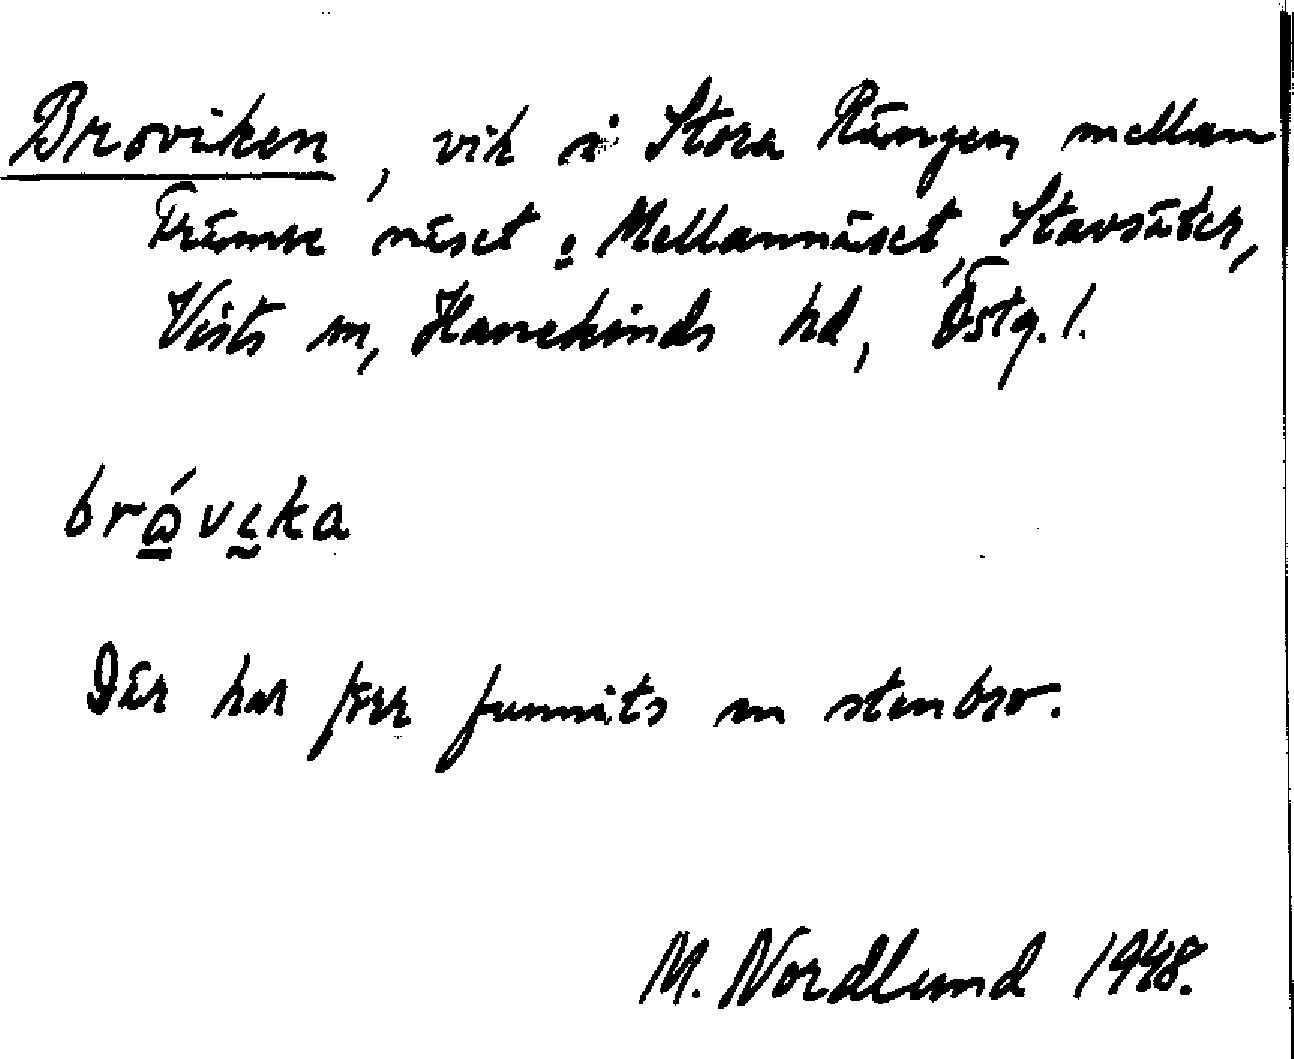 Broviken, vik i Stora Rängen mellan
Främre näset o. Mellannäset, Stavsäter,
Vists sn, Hanekinds hd, Östg. l.
brώ̲vḭka
Där har förr funnits en stenbro.
M. Nordlund 1948.